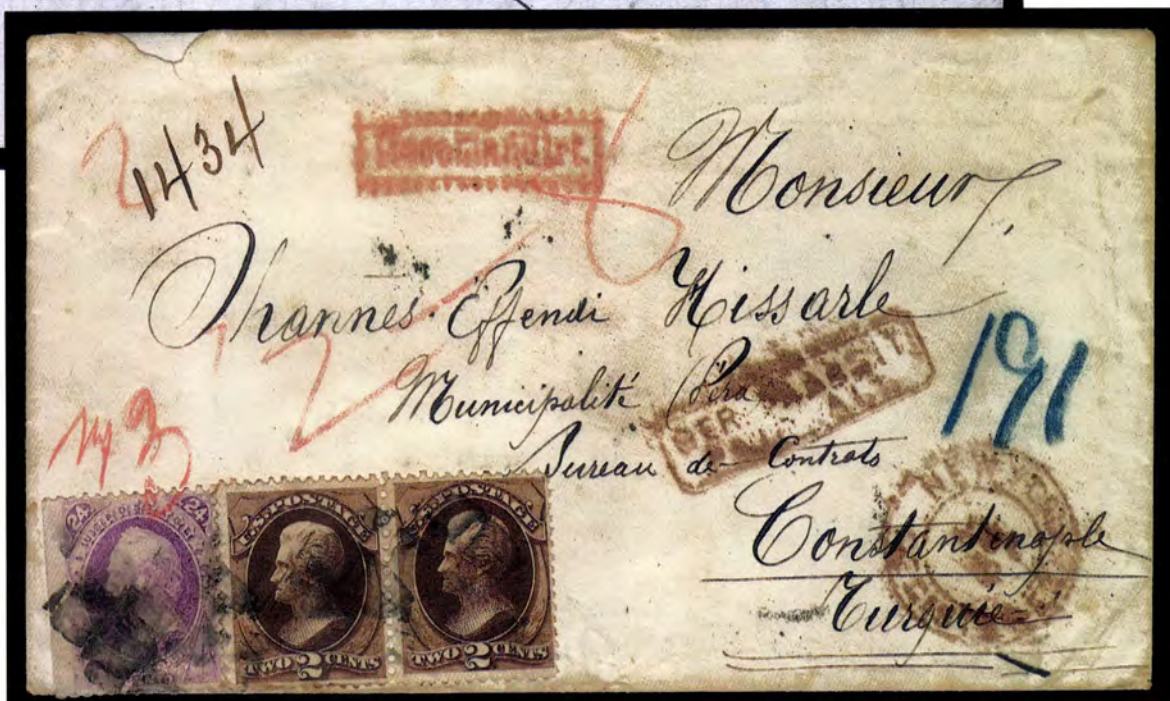 1434
Recommandirt.
Monsieur
Ohannes Effendi Hissarle
Municipalité (Péra)
Bureau de Contrats
Constantinople
Turquie
191
12
24 24
U.S. POSTAGE
TWO 2 CENTS
U.S. POSTAGE
TWO 2 CENTS
NEW